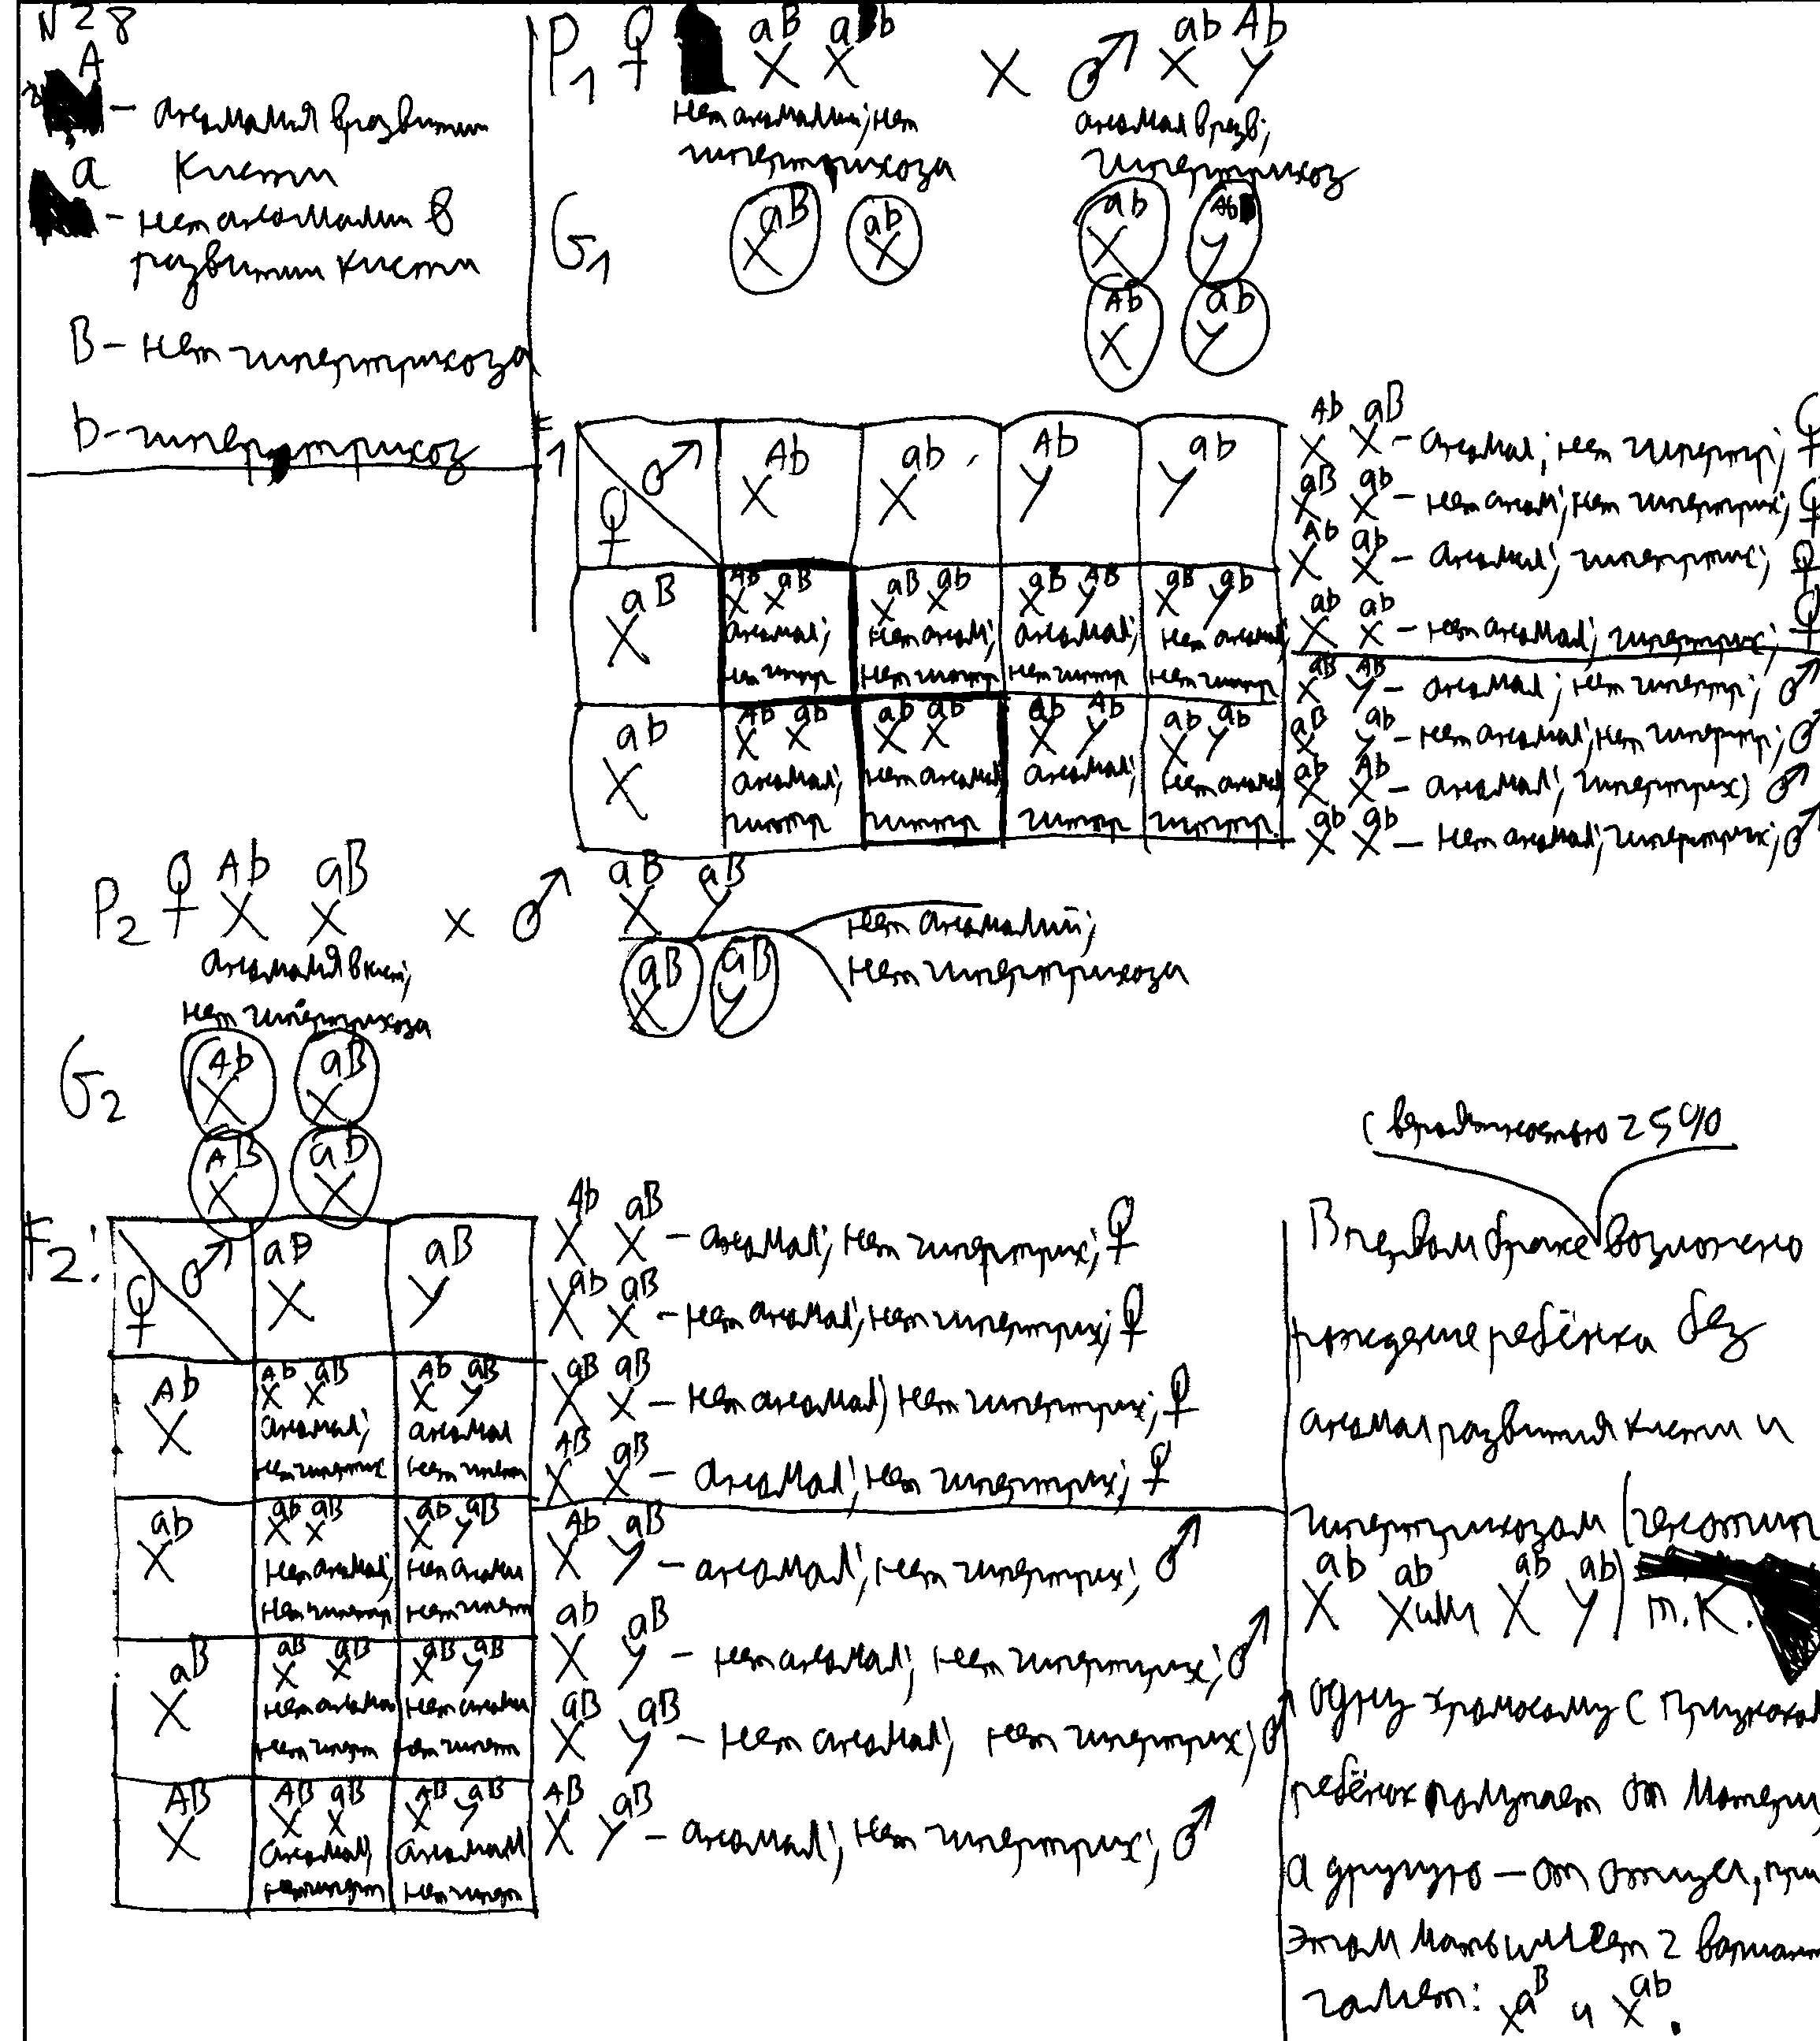 N28
A
- аномалия в развитии
кисти
a
- нет аномалии в
развитии кисти
B - нет гипертрихоза
b - гипертрихоз
P1 ♀ X^aB X^ab × ♂ X^ab Y^Ab
нет аномалии; нет
гипертрихоза
аномал в разв;
гипертрихоз
G1 X^aB X^ab X^ab Y^Ab
X^Ab Y^ab
F1
♀ ♂ X^Ab X^ab Y^Ab Y^ab
X^aB X^AB X^aB X^aB X^ab X^aB Y^AB X^aB Y^ab
аномал; нет аном; аномал; нет аномал;
нет гиптр нет гиптр нет гиптр нет гиптр
X^ab X^Ab X^ab X^ab X^ab X^ab Y^Ab X^ab Y^ab
аномал; нет аномал; аномал; нет аномал;
гиптр гиптр гиптр гиптр.
X^Ab X^aB - аномал; нет гипертр; ♀
X^aB X^ab - нет аном; нет гипертрих; ♀
X^Ab X^ab - аномал; гипертрих; ♀
X^ab X^ab - нет аномал; гипертрих; ♀
X^aB Y^AB - аномал; нет гипертр; ♂
X^aB Y^ab - нет аномал; нет гипертр; ♂
X^ab X^Ab - аномал; гипертрих) ♂
X^ab X^ab - нет аномал; гипертрих; ♂
P2 ♀ X^Ab X^aB × ♂ X^aB Y^aB
аномалия в кист;
нет гипертрихоза
нет аномалий;
нет гипертрихоза
X^aB Y^aB
G2 X^Ab X^aB
X^AB X^ab
F2:
♀ ♂ X^aB Y^aB
X^Ab X^Ab X^aB X^Ab Y^aB
аномал; аномал
X^ab X^ab X^aB X^ab Y^aB
нет аномал; нет аномал
X^aB X^aB X^aB X^aB Y^aB
нет аномал нет аномал
X^AB X^AB X^aB X^AB Y^aB
аномал; аномал
X^Ab X^aB - аномал; нет гипертрих; ♀
X^ab X^aB - нет аномал; нет гипертрих; ♀
X^aB X^aB - нет аномал) нет гипертрих; ♀
X^AB X^aB - аномал; нет гипертрих; ♀
X^Ab Y^aB - аномал; нет гипертрих; ♂
X^ab Y^aB - нет аномал; нет гипертрих; ♂
X^aB Y^aB - нет аномал; нет гипертрих; ♂
X^AB Y^aB - аномал; нет гипертрих; ♂
с вероятностью 25%
В первом браке возможно
рождение ребёнка без
аномал развития кисти и
гипертрихозом (генотип
X^ab X^ab или X^ab Y^ab) т.к.
одну хромосому с признаком
ребёнок получает от матери,
а другую - от отца, при
этом мать имеет 2 вариант
гамет: X^aB и X^ab.